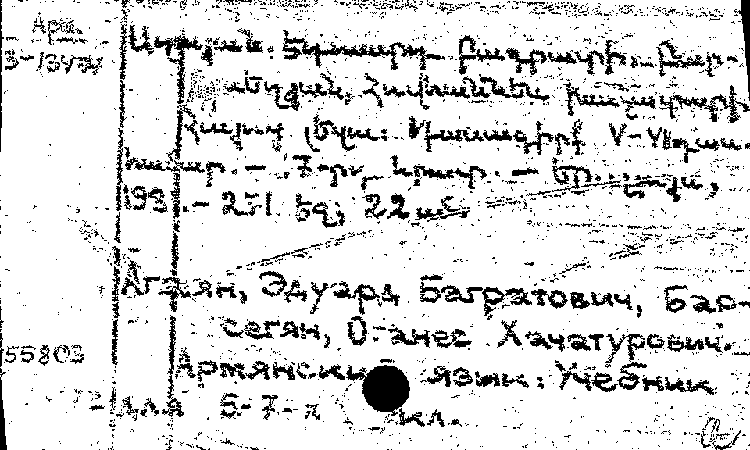 Арм.
3-13434
Աղայան, Էդուարդ Բագրատի, Բար-
սեղյան, Հովհաննես Խաչատուրի
Հայոց լեզու: Դասագիրք V-VII դաս.
համար. — 7-րդ հրատ. — Եր.,
198 .- 251 էջ; 22 սմ.
Агаян, Эдуард Багратович, Бар-
сегян, О-анес Хачатурович.
55803
Армянский язык: Учебник
для 5-7-х кл.